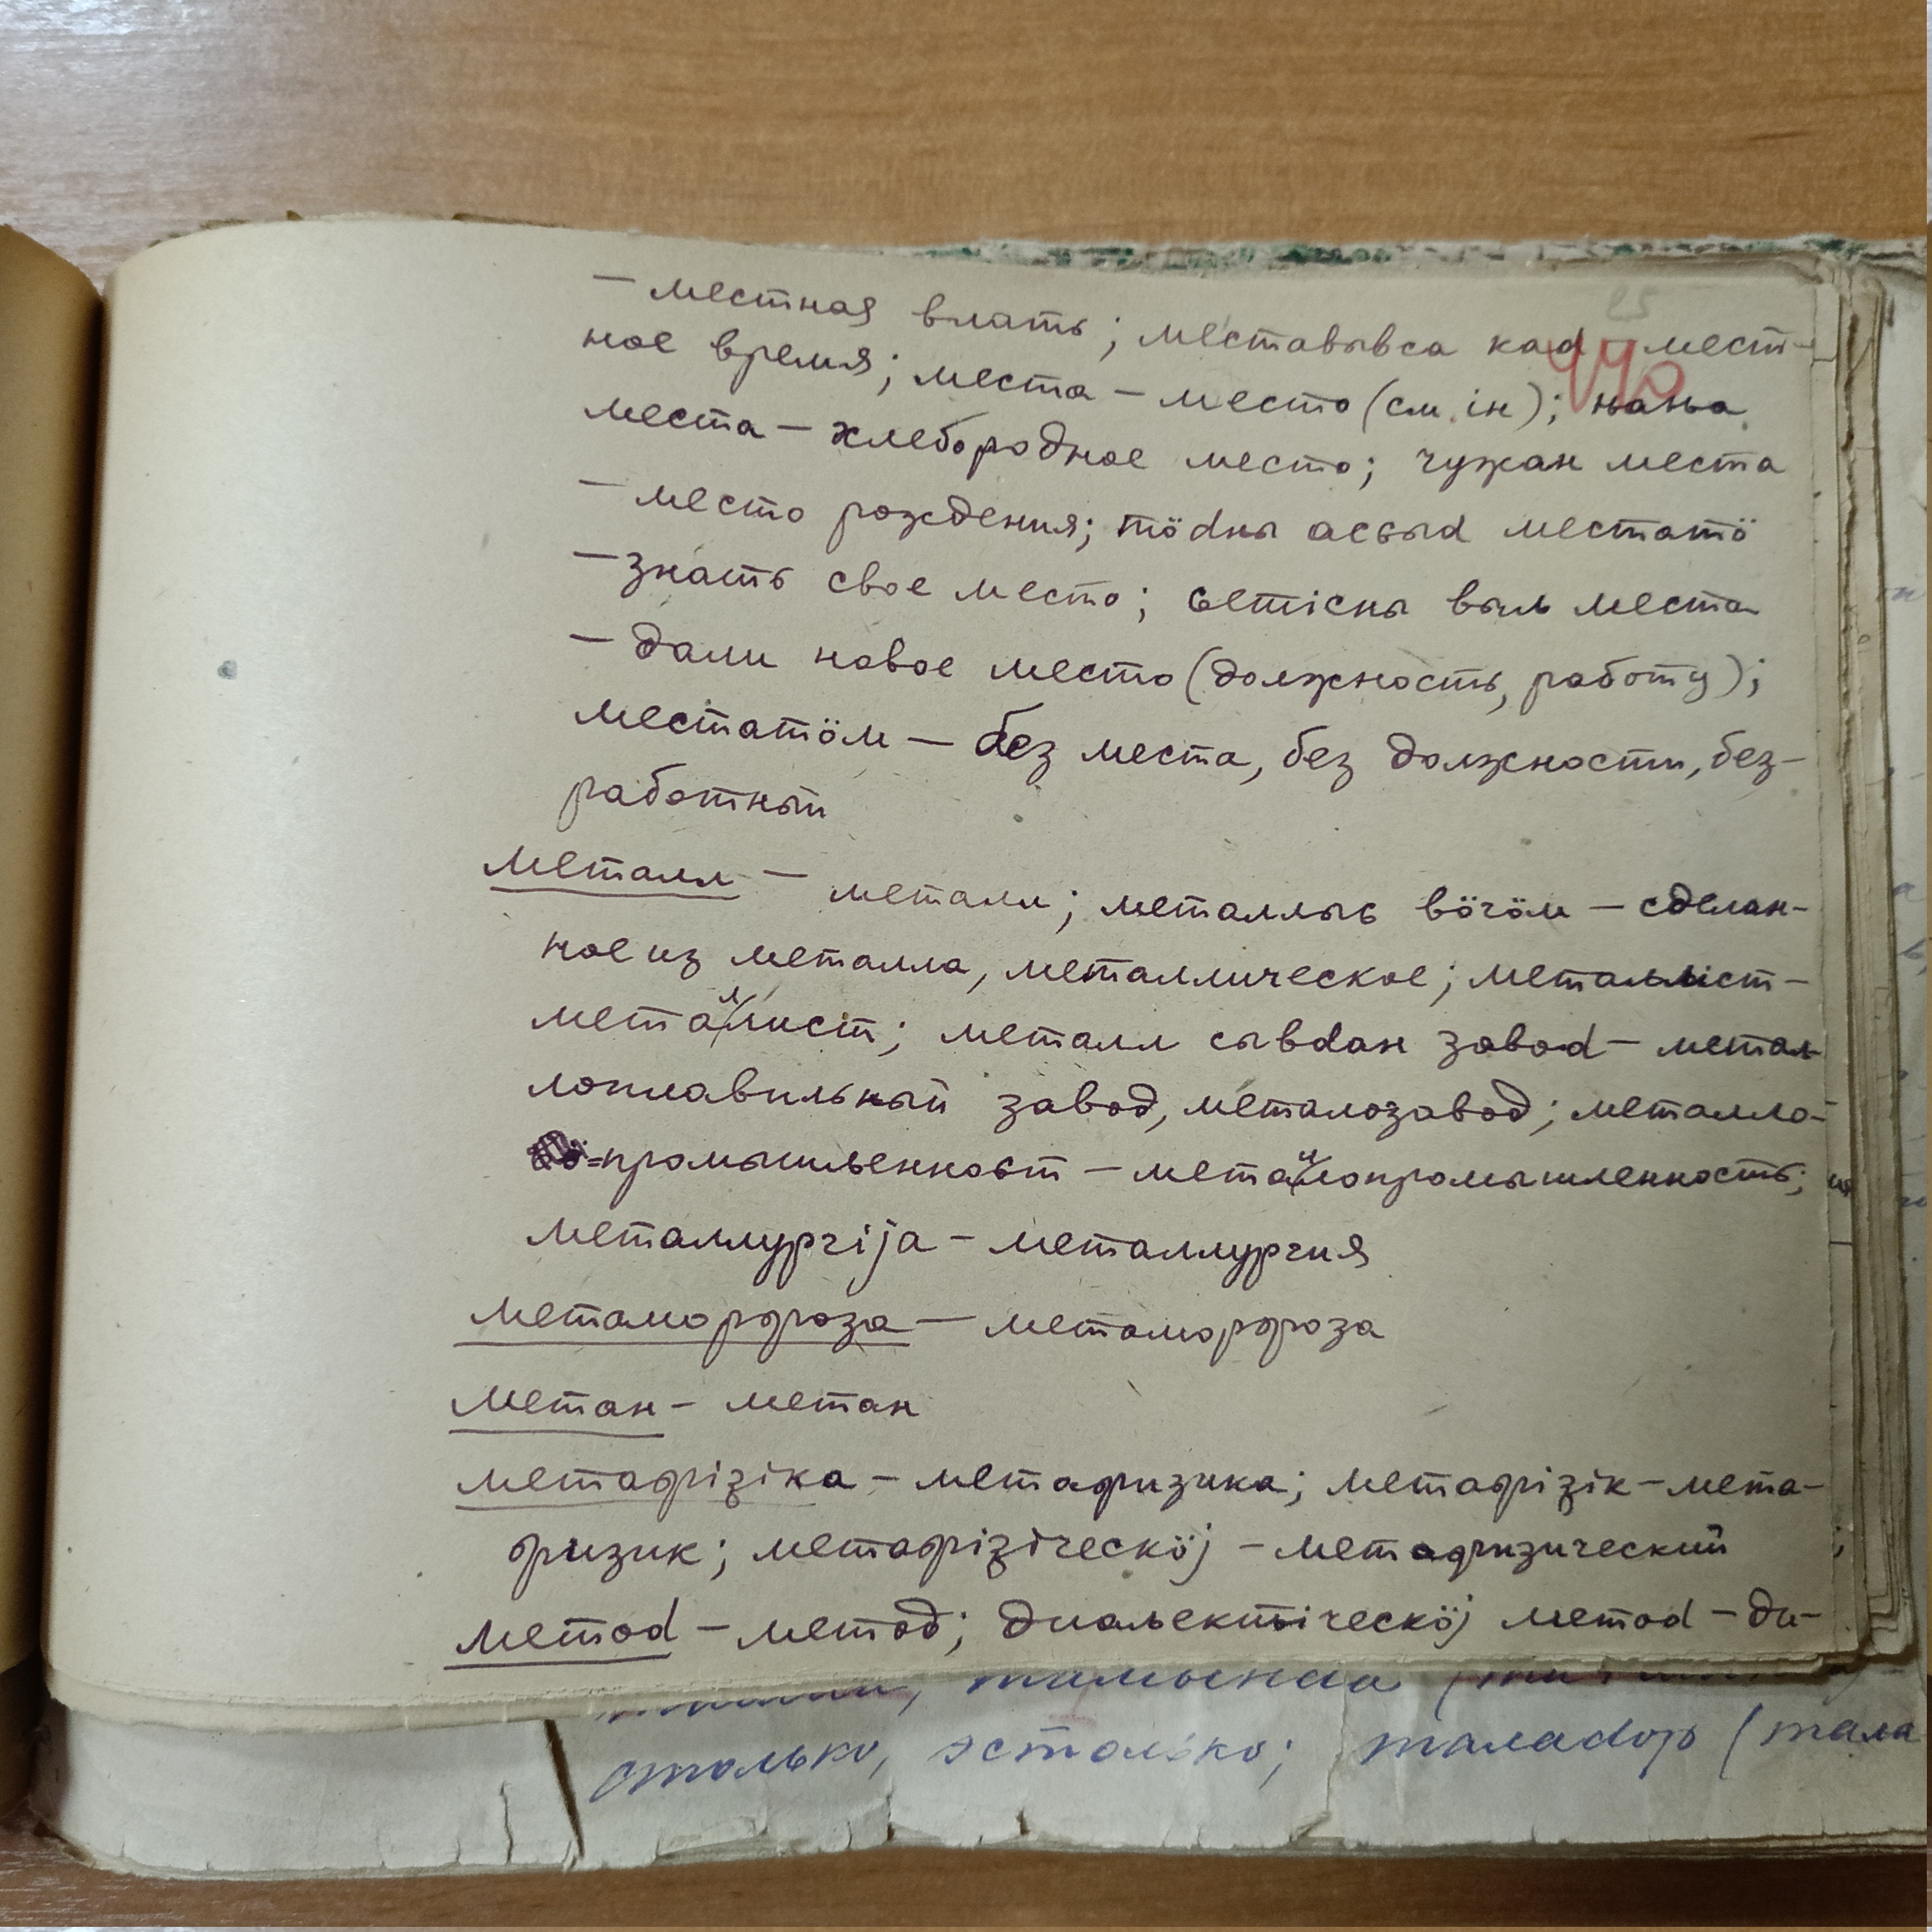 25
440
— местная влать; меставывса каd — мест-
ное время; места — место (см. ін); њањa
места — хлебородное место; чужан места
— место рождения; тӧdны асԍыd местатӧ
— знать свое место; сетісны выль места
— дали новое место (должность, работу);
местатӧм — без места, без должности, без-
работный
металл — металл; металлыԍ вӧчӧм — сделан-
ное из металла, металлическое; металліст —
металлист; металл сывdан завоd — метал-
лоплавильный завод, металозавод; металло-
=промышԉенноԍт — металлопромышленность;
металлургіја — металлургия
метаморфоза — метаморфоза
метан — метан
метафізіка — метафизика; метафізік — мета-
физик; метафізіческӧј — метафизический
метоd — метод; диаԉектіческӧј метоd — ди-
столько, эстолько; талаdор (тала